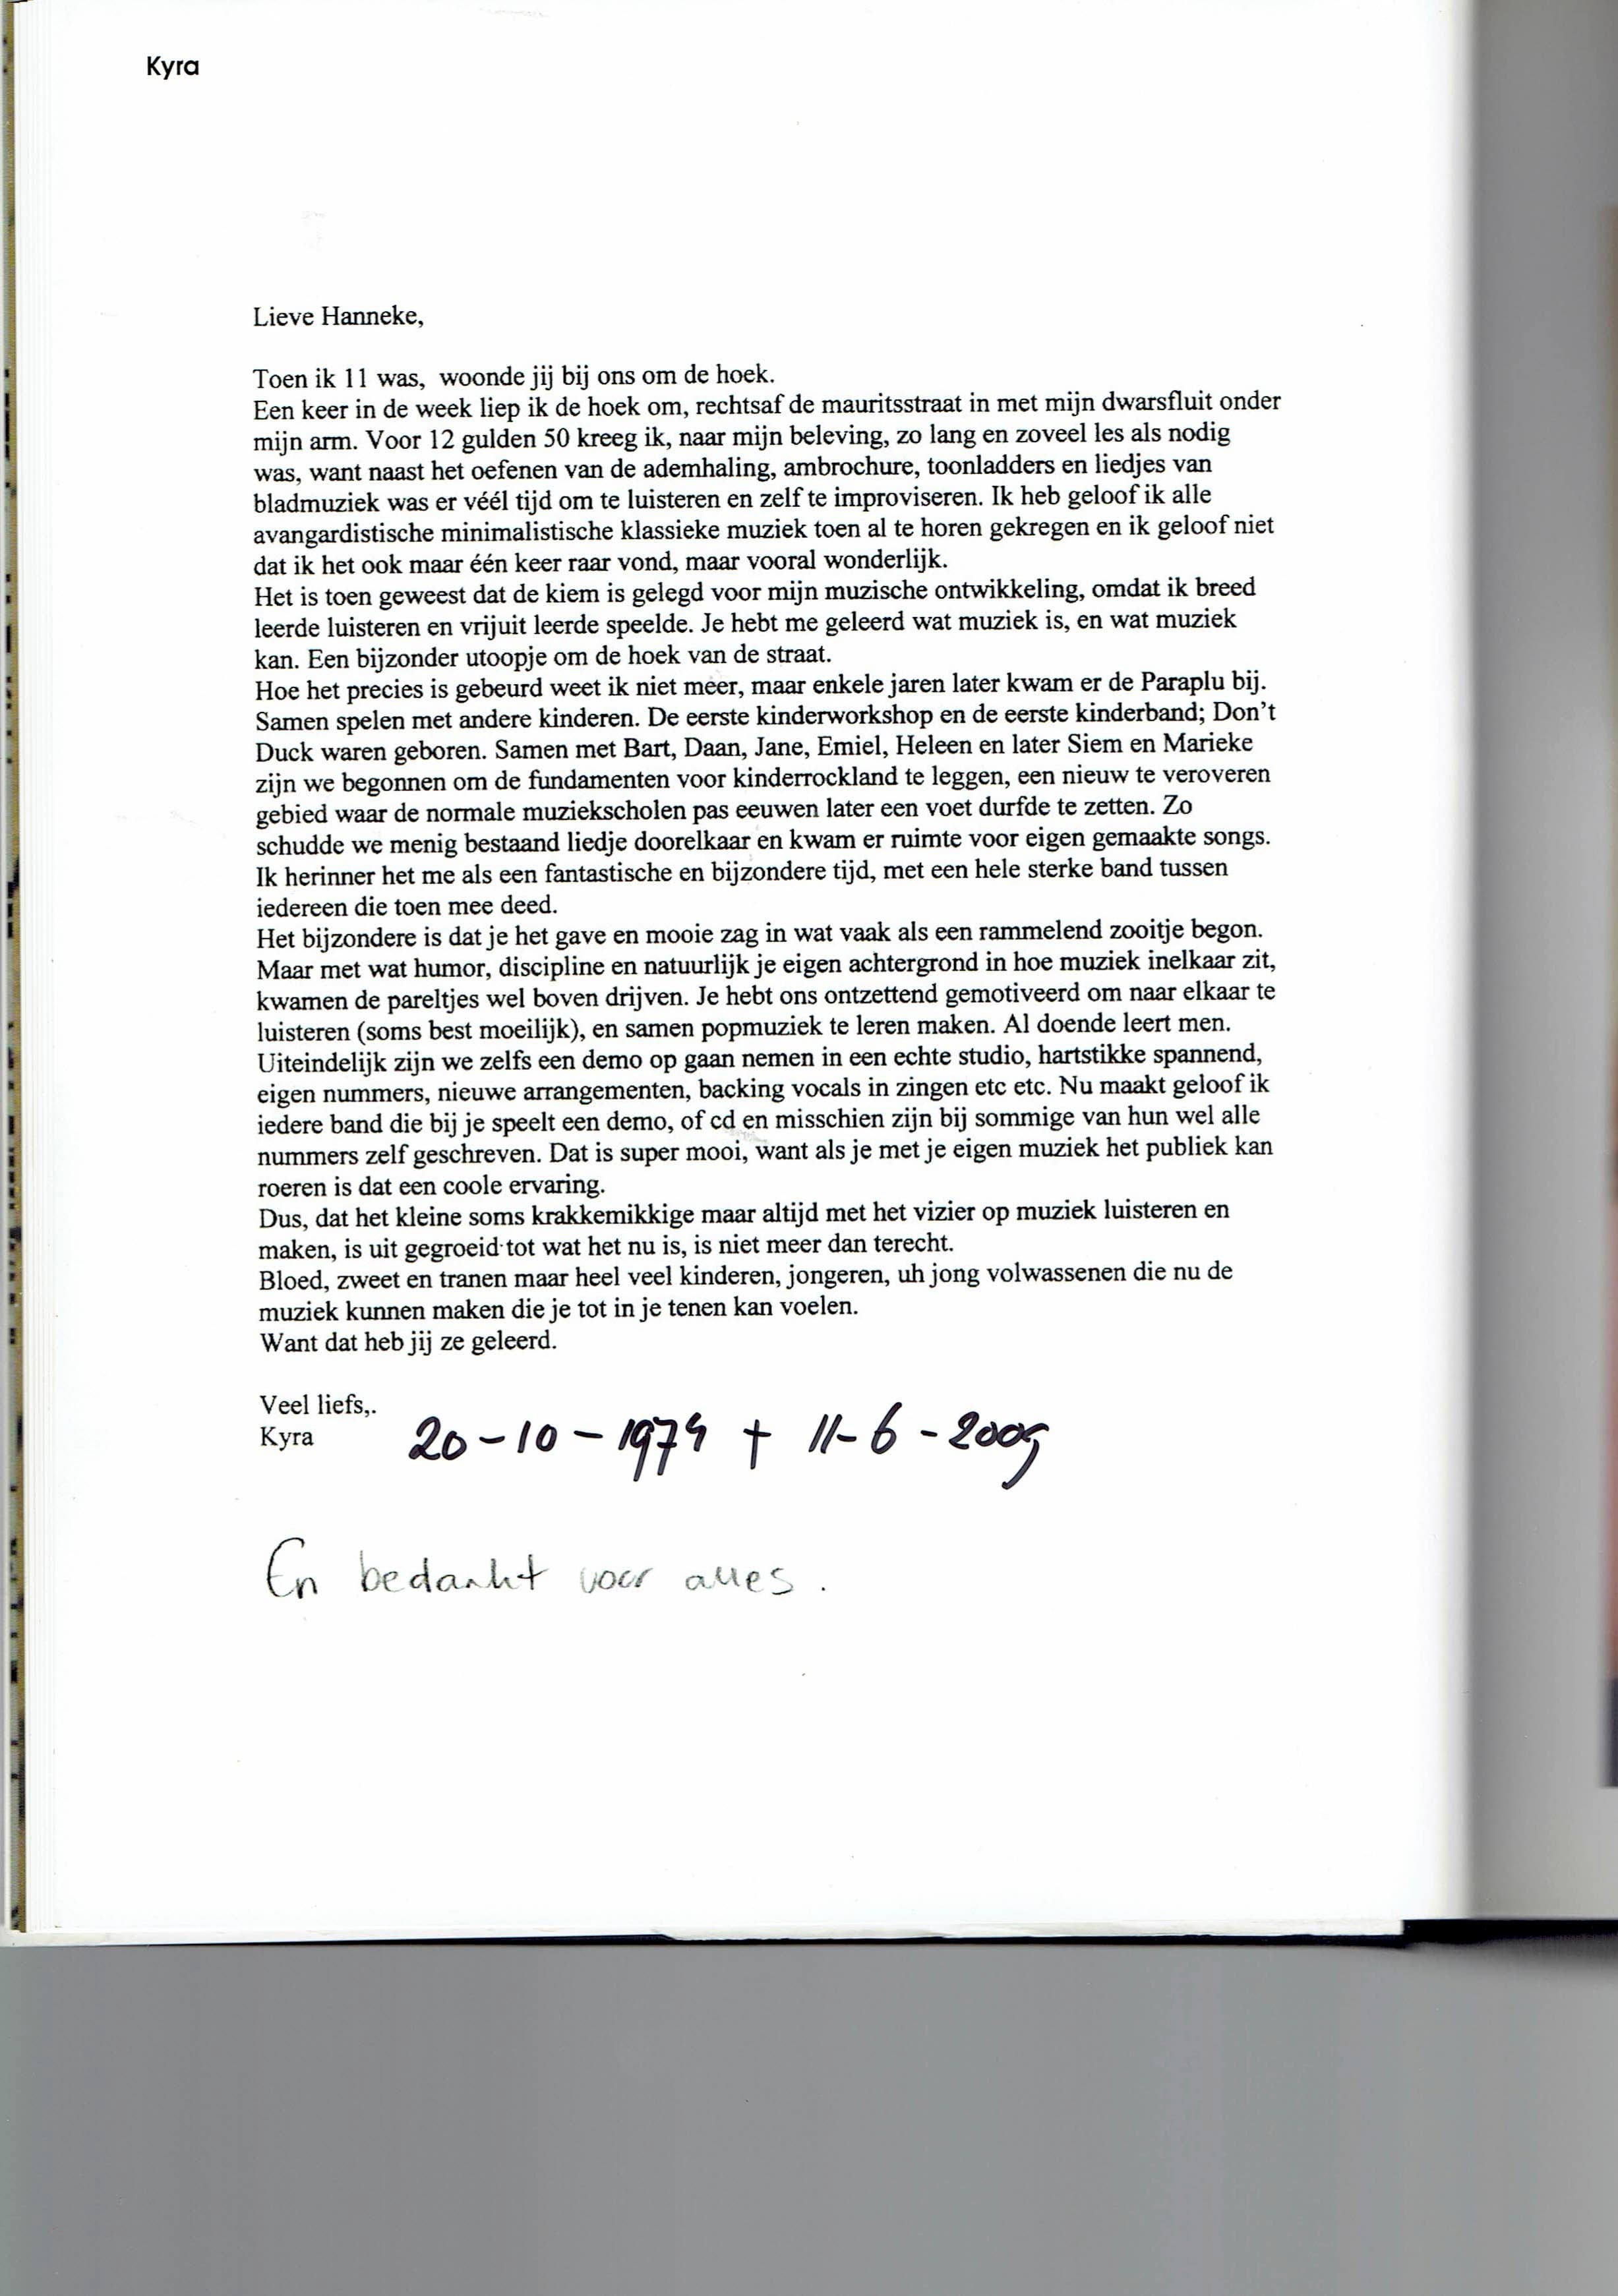 Kyra
Lieve Hanneke,
Toen ik 11 was, woonde jij bij ons om de hoek.
Een keer in de week liep ik de hoek om, rechtsaf de mauritsstraat in met mijn dwarsfluit onder
mijn arm. Voor 12 gulden 50 kreeg ik, naar mijn beleving, zo lang en zoveel les als nodig
was, want naast het oefenen van de ademhaling, ambrochure, toonladders en liedjes van
bladmuziek was er véél tijd om te luisteren en zelf te improviseren. Ik heb geloof ik alle
avangardistische minimalistische klassieke muziek toen al te horen gekregen en ik geloof niet
dat ik het ook maar één keer raar vond, maar vooral wonderlijk.
Het is toen geweest dat de kiem is gelegd voor mijn muzische ontwikkeling, omdat ik breed
leerde luisteren en vrijuit leerde speelde. Je hebt me geleerd wat muziek is, en wat muziek
kan. Een bijzonder utoopje om de hoek van de straat.
Hoe het precies is gebeurd weet ik niet meer, maar enkele jaren later kwam er de Paraplu bij.
Samen spelen met andere kinderen. De eerste kinderworkshop en de eerste kinderband; Don't
Duck waren geboren. Samen met Bart, Daan, Jane, Emiel, Heleen en later Siem en Marieke
zijn we begonnen om de fundamenten voor kinderrockland te leggen, een nieuw te veroveren
gebied waar de normale muziekscholen pas eeuwen later een voet durfde te zetten. Zo
schudde we menig bestaand liedje doorelkaar en kwam er ruimte voor eigen gemaakte songs.
Ik herinner het me als een fantastische en bijzondere tijd, met een hele sterke band tussen
iedereen die toen mee deed.
Het bijzondere is dat je het gave en mooie zag in wat vaak als een rammelend zooitje begon.
Maar met wat humor, discipline en natuurlijk je eigen achtergrond in hoe muziek inelkaar zit,
kwamen de pareltjes wel boven drijven. Je hebt ons ontzettend gemotiveerd om naar elkaar te
luisteren (soms best moeilijk), en samen popmuziek te leren maken. Al doende leert men.
Uiteindelijk zijn we zelfs een demo op gaan nemen in een echte studio, hartstikke spannend,
eigen nummers, nieuwe arrangementen, backing vocals in zingen etc etc. Nu maakt geloof ik
iedere band die bij je speelt een demo, of cd en misschien zijn bij sommige van hun wel alle
nummers zelf geschreven. Dat is super mooi, want als je met je eigen muziek het publiek kan
roeren is dat een coole ervaring.
Dus, dat het kleine soms krakkemikkige maar altijd met het vizier op muziek luisteren en
maken, is uit gegroeid tot wat het nu is, is niet meer dan terecht.
Bloed, zweet en tranen maar heel veel kinderen, jongeren, uh jong volwassenen die nu de
muziek kunnen maken die je tot in je tenen kan voelen.
Want dat heb jij ze geleerd.
Veel liefs,.
Kyra 20-10-1974 + 11-6-2009
En bedankt voor alles.